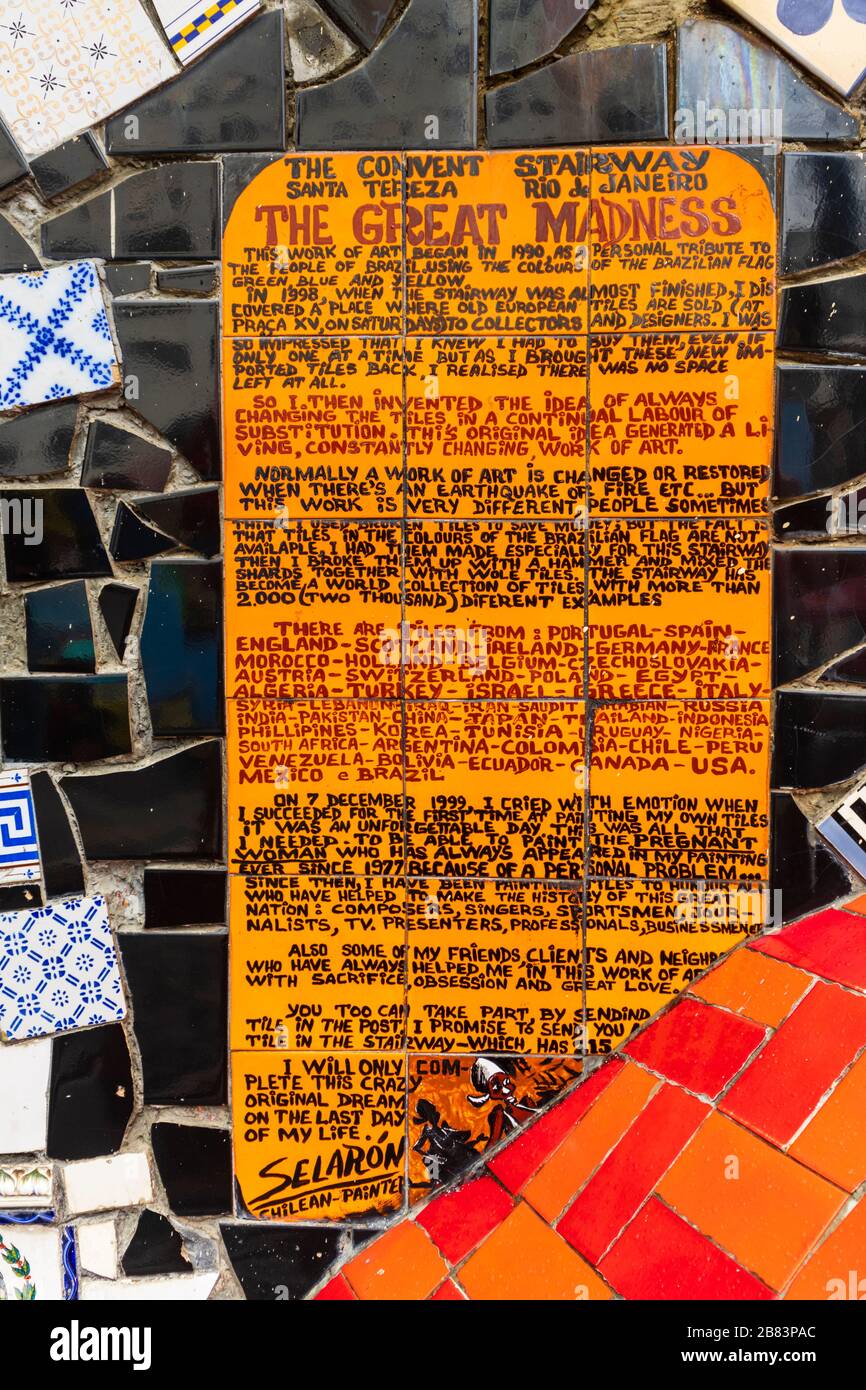 THE CONVENT STAIRWAY
SANTA TEREZA RIO de JANEIRO
THE GREAT MADNESS
THIS WORK OF ART BEGAN IN 1990, AS A PERSONAL TRIBUTE TO
THE PEOPLE OF BRAZIL. USING THE COLOURS OF THE BRAZILIAN FLAG
GREEN BLUE AND YELLOW
IN 1998, WHEN THE STAIRWAY WAS ALMOST FINISHED, I DIS
COVERED A PLACE WHERE OLD EUROPEAN TILES ARE SOLD (AT
PRAÇA XV, ON SATURDAYS) TO COLLECTORS AND DESIGNERS. I WAS
SO IMPRESSED THAT I KNEW I HAD TO BUY THEM, EVEN IF
ONLY ONE AT A TIME BUT AS I BROUGHT THESE NEW IM-
PORTED TILES BACK, I REALISED THERE WAS NO SPACE
LEFT AT ALL.
SO I, THEN INVENTED THE IDEA OF ALWAYS
CHANGING THE TILES IN A CONTINUAL LABOUR OF
SUBSTITUTION. THIS ORIGINAL IDEA GENERATED A LI
VING, CONSTANTLY CHANGING, WORK OF ART.
NORMALLY A WORK OF ART IS CHANGED OR RESTORED
WHEN THERE'S AN EARTHQUAKE OR FIRE ETC... BUT
THIS WORK IS VERY DIFFERENT PEOPLE SOMETIMES
TILES TO SAVE MONEY, BUT THE FACT
THAT TILES IN THE COLOURS OF THE BRAZILIAN FLAG ARE NOT
AVAILABLE, I HAD THEM MADE ESPECIALLY FOR THIS STAIRWAY
THEN I BROKE THEM UP WITH A HAMMER AND MIXED THE
SHARDS TOGETHER WITH WOLE TILES. THE STAIRWAY HAS
BECOME A WORLD COLLECTION OF TILES WITH MORE THAN
2.000 (TWO THOUSAND) DIFERENT EXAMPLES
THERE ARE TILES FROM: PORTUGAL-SPAIN-
ENGLAND-SCOTLAND-IRELAND-GERMANY-FRANCE
MOROCCO-HOLLAND-BELGIUM-CZECHOSLOVAKIA-
AUSTRIA-SWITZERLAND-POLAND-EGYPT-
ALGERIA-TURKEY-ISRAEL-GREECE-ITALY
SYRIA-LEBANON-IRAQ-IRAN SAUDIT RUSSIA
INDIA-PAKISTAN-CHINA-JAPAN THAILAND-INDONESIA
PHILLIPINES KOREA-TUNISIA URUGUAY-NIGERIA-
SOUTH AFRICA-ARGENTINA-COLOMBIA-CHILE-PERU
VENEZUELA-BOLIVIA-ECUADOR-CANADA-USA.
MEXICO e BRAZIL
ON 7 DECEMBER 1999, I CRIED WITH EMOTION WHEN
I SUCCEEDED FOR THE FIRST TIME AT PAINTING MY OWN TILES
IT WAS AN UNFORGETTABLE DAY, THIS WAS ALL THAT
I NEEDED-TO BE ABLE TO PAINT THE PREGNANT
WOMAN WHO HAS ALWAYS APPEARED IN MY PAINTING
EVER SINCE 1977 BECAUSE OF A PERSONAL PROBLEM...
SINCE THEN, I HAVE BEEN PAINTING TILES TO HONOUR ALL
WHO HAVE HELPED TO MAKE THE HISTORY OF THIS GREAT
NATION: COMPOSERS, SINGERS, SPORTSMEN, JOUR-
NALISTS, TV. PRESENTERS, PROFESSIONALS, BUSINESSMEN
ALSO SOME OF MY FRIENDS, CLIENTS AND NEIGHB
WHO HAVE ALWAYS HELPED ME IN THIS WORK OF AR
WITH SACRIFICE, OBSESSION AND GREAT LOVE.
YOU TOO CAN TAKE PART, BY SENDING
TILE IN THE POST, I PROMISE TO SEND YOU A
TILE IN THE STAIRWAY-WHICH, HAS 215
I WILL ONLY COM-
PLETE THIS CRAZY
ORIGINAL DREAM
ON THE LAST DAY
OF MY LIFE.
SELARÓN
CHILEAN-PAINTER
alamy
Image ID: 2B83PAC
www.alamy.com